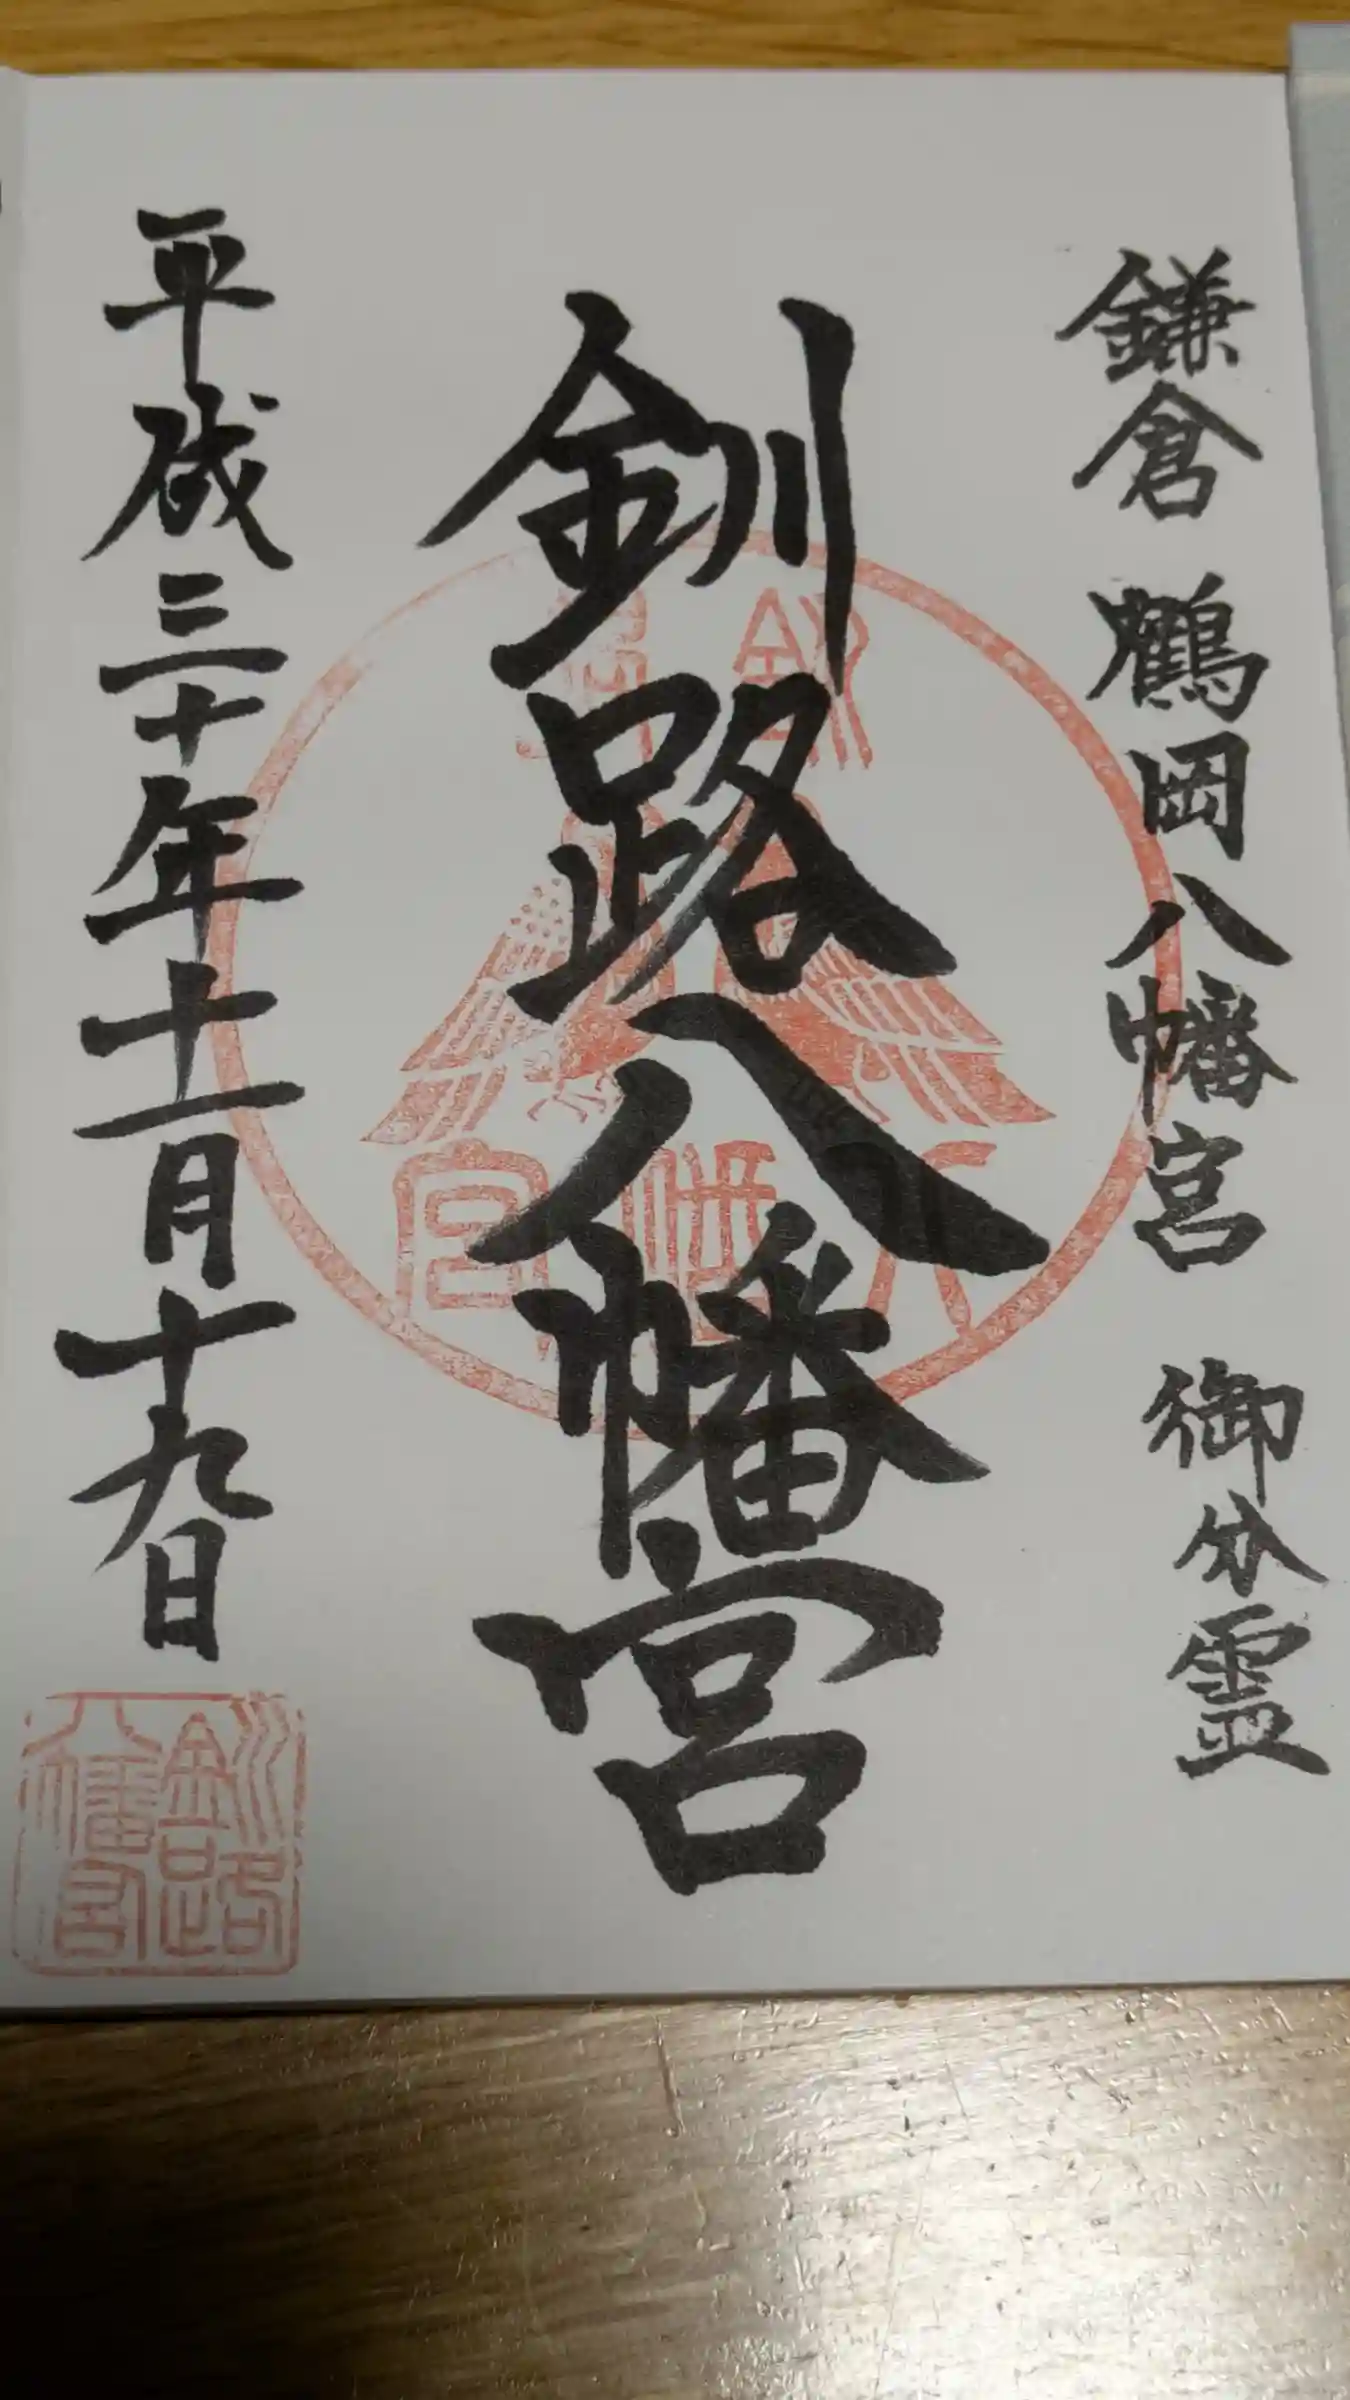 鎌倉 鶴岡八幡宮 御分霊
釧路八幡宮
平成三十年十一月十九日
釧路
八幡宮
釧路八幡宮